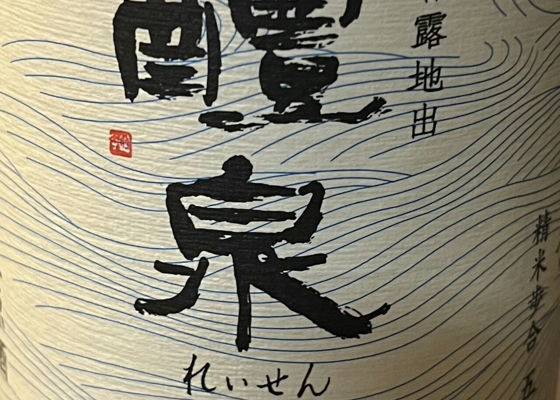 醴
泉
れいせん
露地出
精米歩合 五